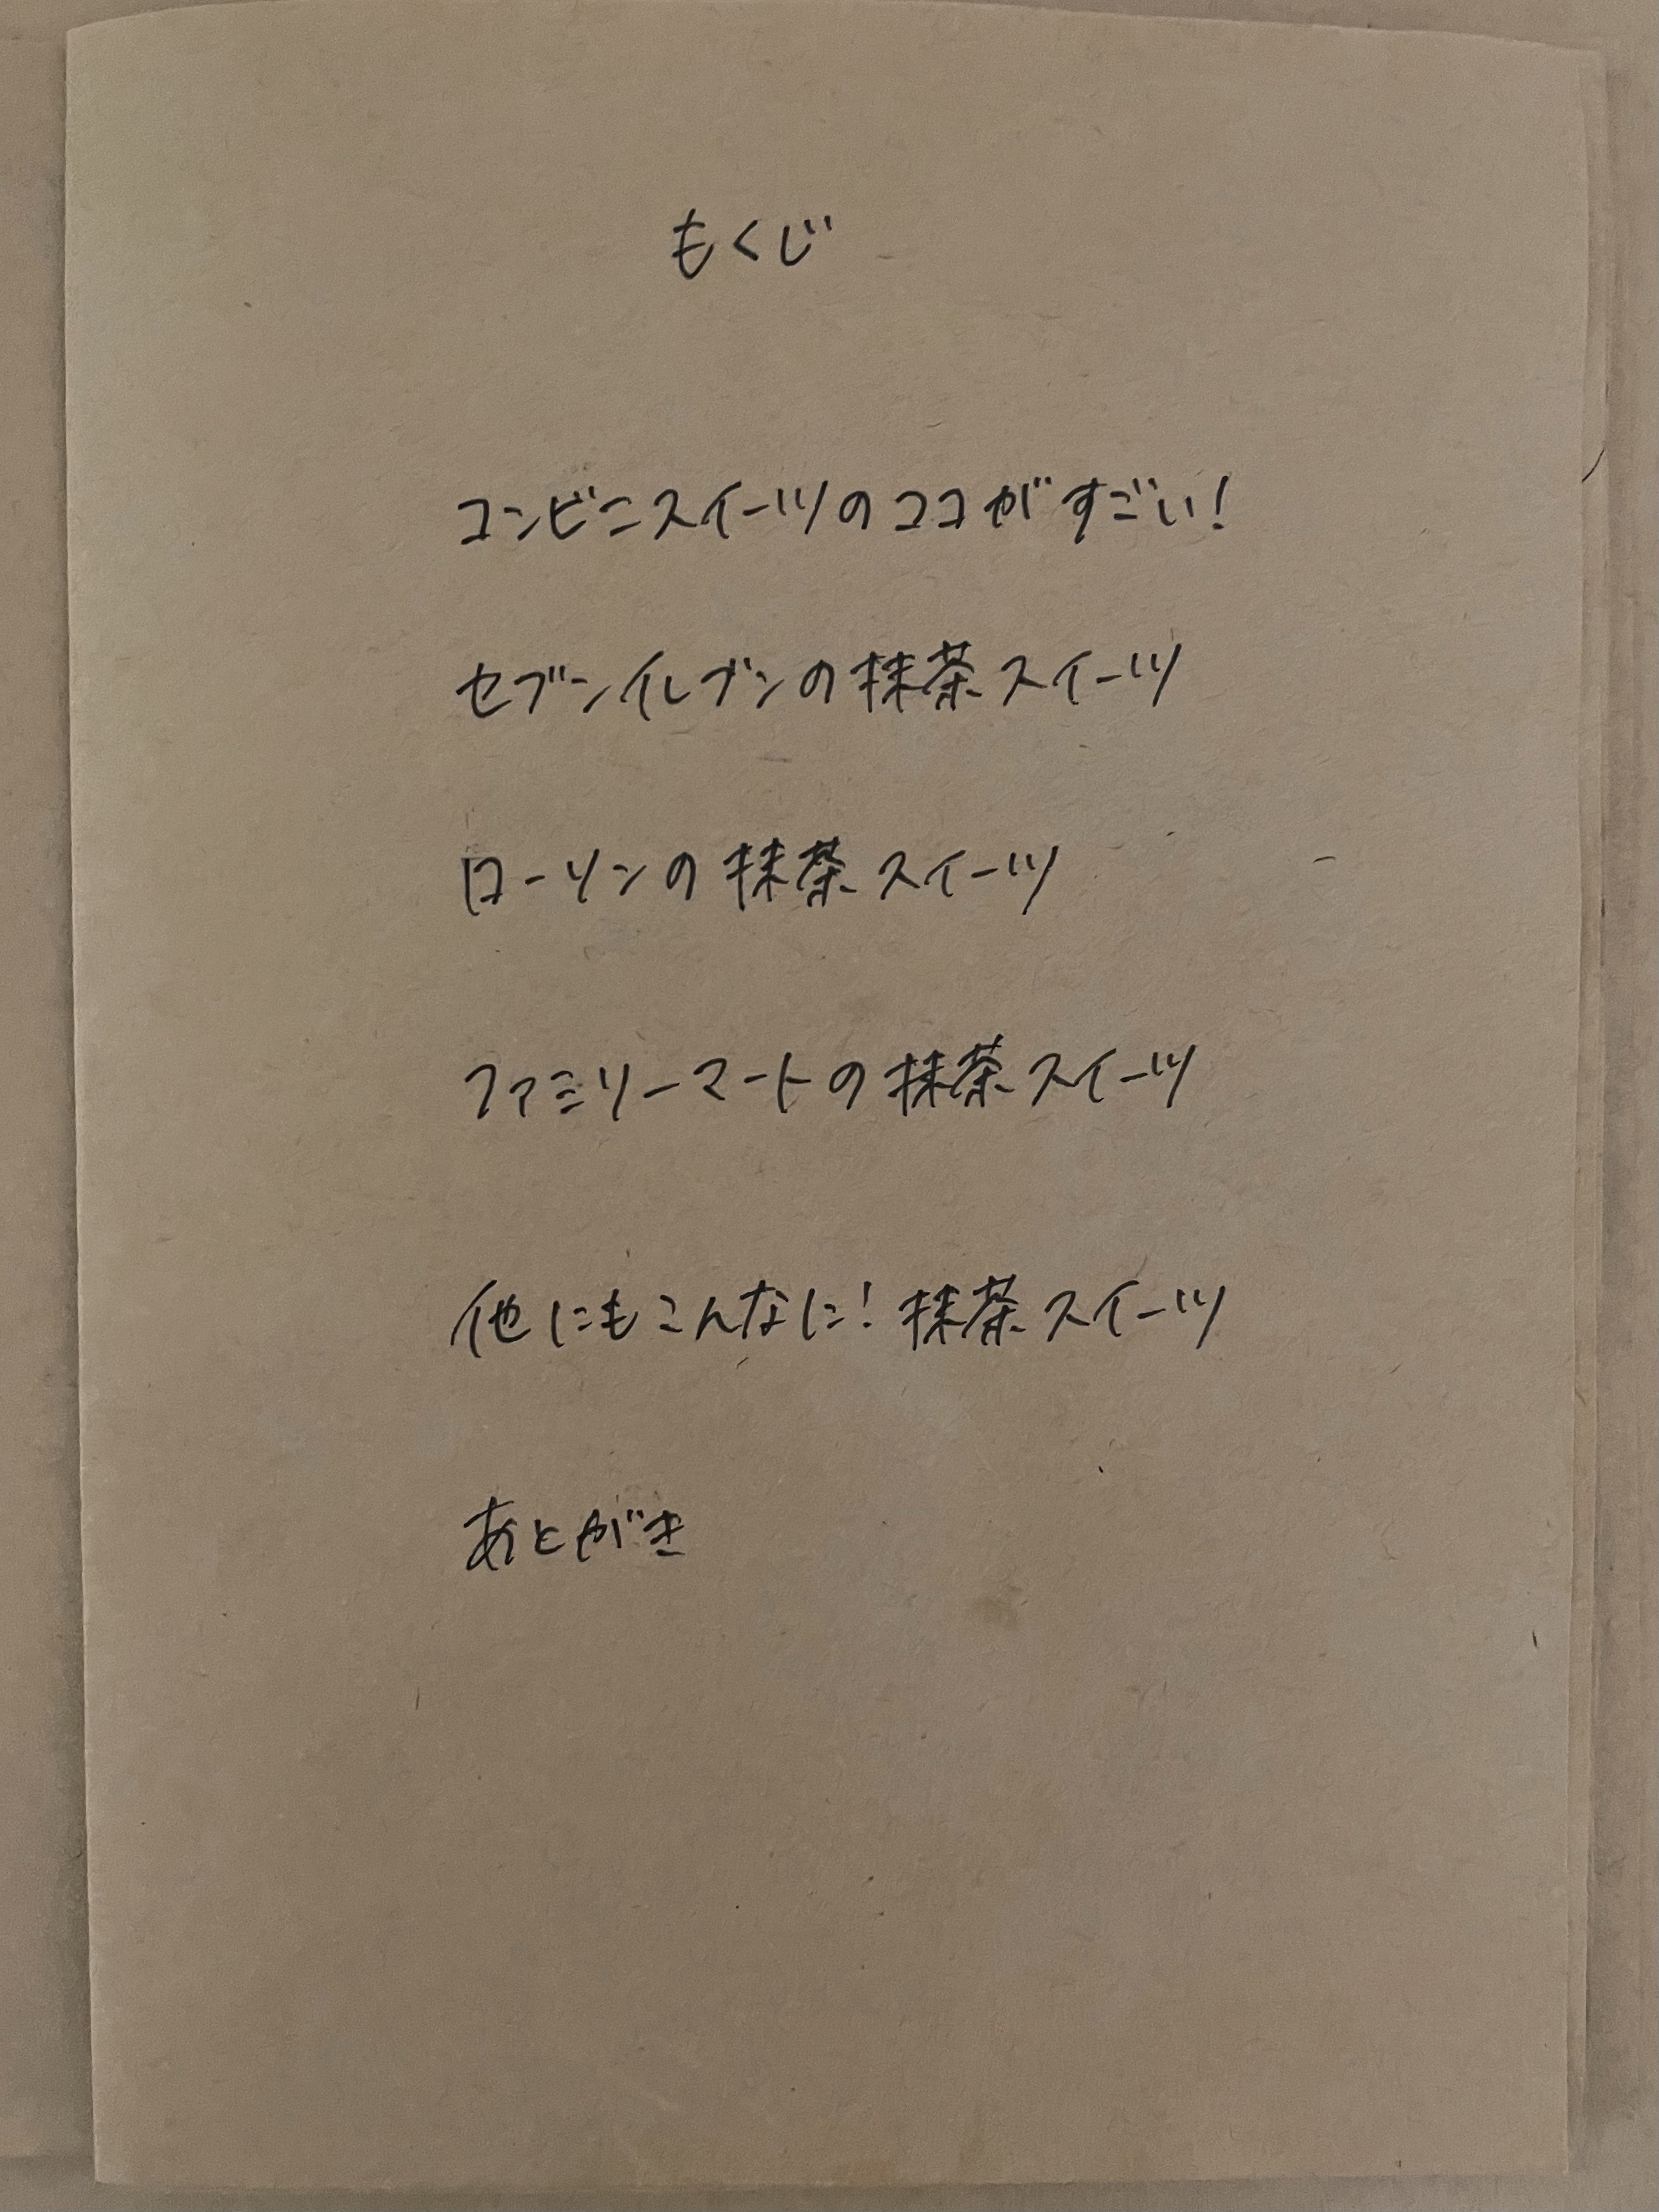 もくじ
コンビニスイーツのココがすごい!
セブンイレブンの抹茶スイーツ
ローソンの抹茶スイーツ
ファミリーマートの抹茶スイーツ
他にもこんなに!抹茶スイーツ
あとがき